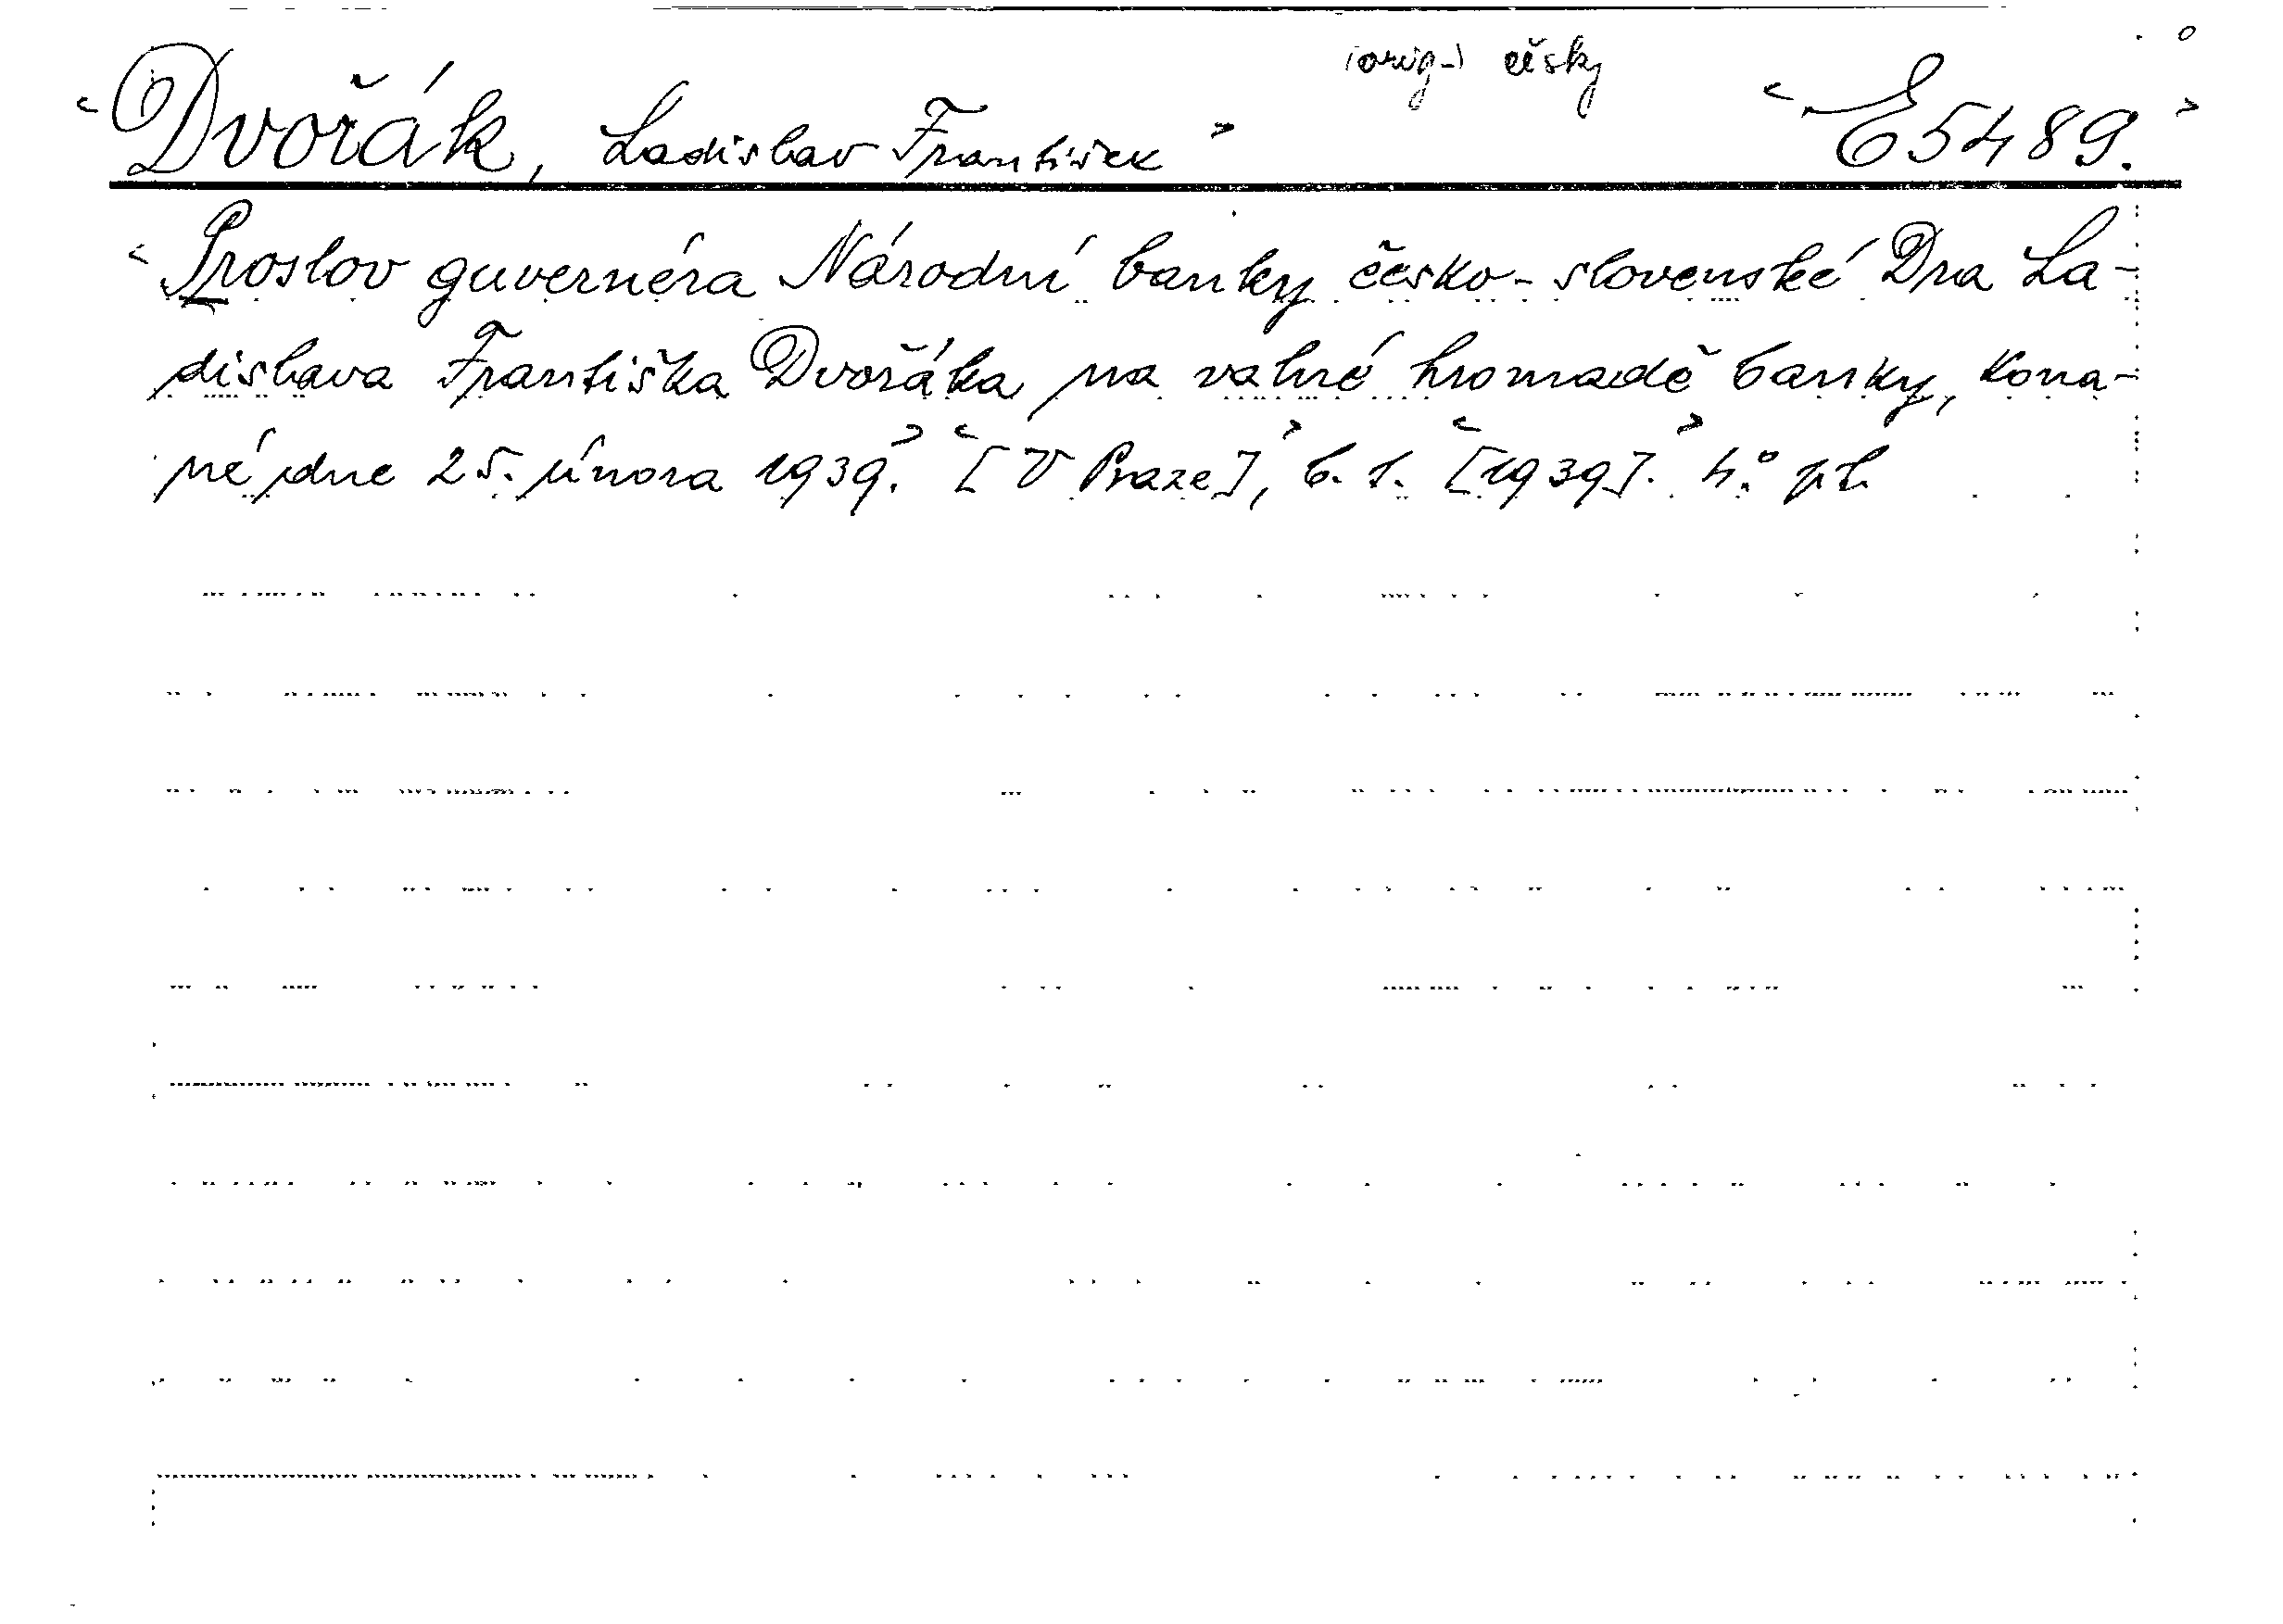 (orig-) česky
<Dvořák, Ladislav František> <E5489.>
<Proslov guvernéra Národní banky česko-slovenské Dra La-
dislava Františka Dvořáka na valné hromadě banky, kona-
né dne 25. února 1939.> <[V Praze],> b. t. <[1939].> 4.°